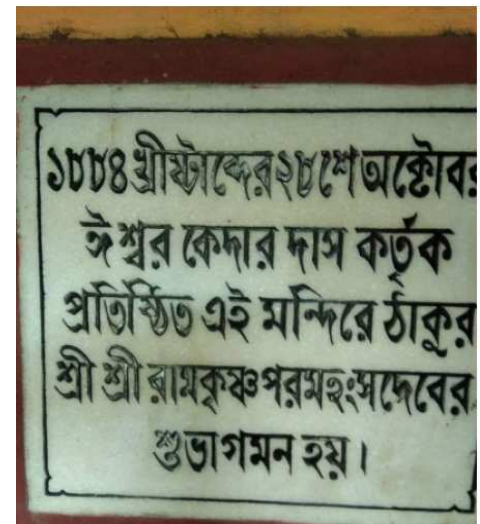 ১৮৮৪ খ্রীষ্টাব্দের ২৮শে অক্টোবর
ঈশ্বর কেদার দাস কর্তৃক
প্রতিষ্ঠিত এই মন্দিরে ঠাকুর
শ্রী শ্রী রামকৃষ্ণ পরমহংসদেবের
শুভাগমন হয়।